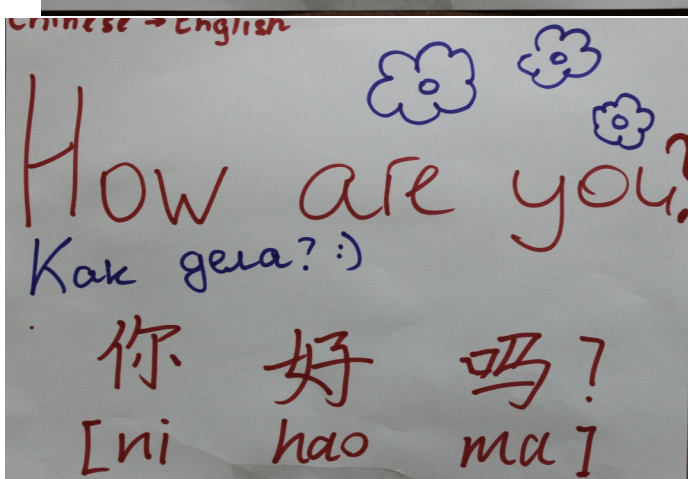 Chinese → English
How are you?
Как дела? :)
你 好 吗 ?
[ni hao ma]